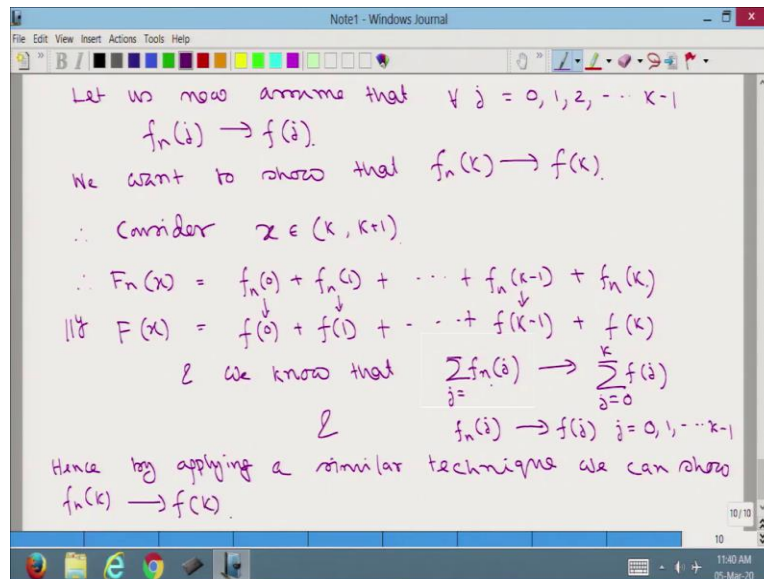 Note1 - Windows Journal
File Edit View Insert Actions Tools Help
Let us now assume that ∀ j = 0, 1, 2, - - - K-1
fn(j) → f(j).
We want to show that fn(K) → f(K).
∴ Consider x ∈ (K, K+1)
∴ Fn(x) = fn(0) + fn(1) + - - - - + fn(K-1) + fn(K)
↓ ↓ ↓
||ly F(x) = f(0) + f(1) + - - - - + f(K-1) + f(K)
& we know that ∑ fn(j) → ∑ f(j)
j= K j=0
& fn(j) → f(j) j = 0, 1, - - - K-1
Hence by applying a similar technique we can show
fn(K) → f(K).
10/10
10
11:40 AM
05-Mar-20